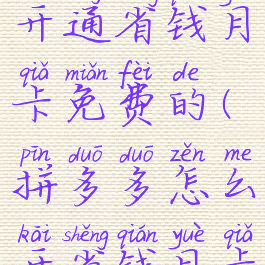 开通省钱月
qiǎ miǎn fèi de
卡免费的(
pīn duō duō zěn me
拼多多怎么
kāi shěng qián yuè qiǎ
开省钱月卡